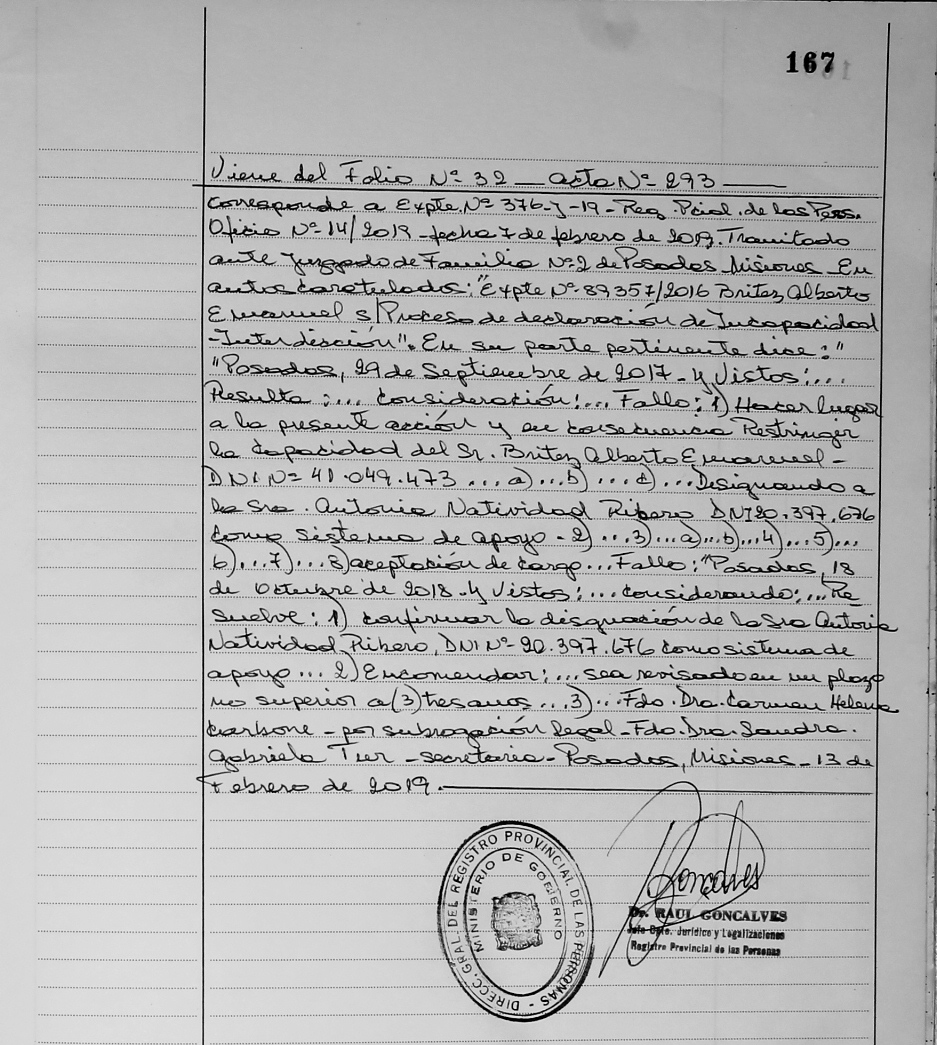 167
Viene del Folio Nº 32 — acta Nº 293 —
corresponde a Expte. Nº 376-J-19-Reg. Pcial. de las Pers.
Oficio Nº 14/2019 - fecha 7 de febrero de 2019. Tramitado
ante Juzgado de Familia Nº 2 de Posadas Misiones - En
autos caratulados: "Expte Nº 89357/2016 Britez Alberto
Emanuel s/ Proceso de declaración de Incapacidad
-Interdicción". En su parte pertinente dice: "
"Posadas, 29 de Septiembre de 2017 - Y Vistos:...
Resulta:... Consideración:... Fallo: 1) Hacer lugar
a la presente acción y en consecuencia Restringir
la capacidad del Sr. Britez Alberto Emanuel -
DNI Nº 41.049.473 ... a)...b)...c)... Designando a
la Sra. Antonia Natividad Ribero DNI 20.397.676
como sistema de apoyo - 2)...3)...a)...b)...4)...5)...
6)...7)...8) aceptación de cargo... Fallo: "Posadas, 18
de Octubre de 2018 - Y Vistos:... considerando:... Re
suelve: 1) confirmar la designación de la Sra Antonia
Natividad Ribero, DNI Nº 20.397.676 como sistema de
apoyo... 2) Encomendar:... sea revisado en un plazo
no superior a (3) tres anos...3)... Fdo. Dra. Carmen Helena
Carbone - por subrogación legal - Fdo. Dra. Sandra
Gabriela Tier - secretaria - Posadas, Misiones - 13 de
Febrero de 2019.
DIRECC. GRAL. DEL REGISTRO PROVINCIAL DE LAS PERSONAS
MINISTERIO DE GOBIERNO
Goncalves
Dr. RAUL GONCALVES
Jefe Dpto. Jurídico y Legalizaciones
Registro Provincial de las Personas